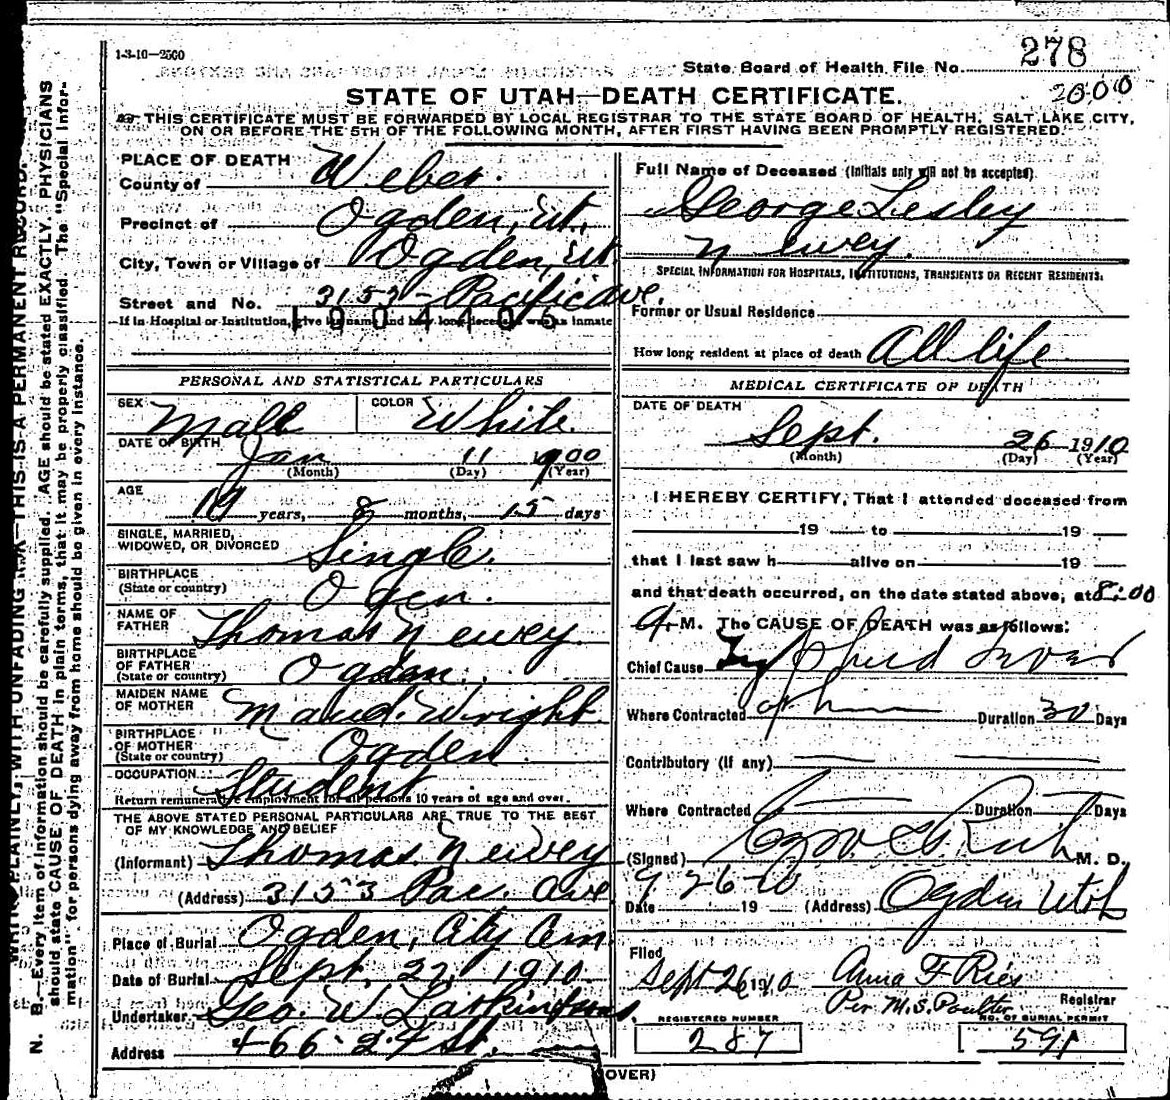 1-3-10—2500
State Board of Health File No. 278
2000
STATE OF UTAH—DEATH CERTIFICATE.
THIS CERTIFICATE MUST BE FORWARDED BY LOCAL REGISTRAR TO THE STATE BOARD OF HEALTH, SALT LAKE CITY,
ON OR BEFORE THE 5TH OF THE FOLLOWING MONTH, AFTER FIRST HAVING BEEN PROMPTLY REGISTERED.
PLACE OF DEATH
County of Weber.
Precinct of Ogden, Ut.
City, Town or Village of Ogden, Ut
Street and No. 3153 - Pacific ave.
If in Hospital or Institution, give its name and how long deceased was an inmate
1904406
PERSONAL AND STATISTICAL PARTICULARS
SEX Male COLOR White.
DATE OF BIRTH Jan 11 1900
(Month) (Day) (Year)
AGE
10 years, 8 months, 15 days
SINGLE, MARRIED,
WIDOWED, OR DIVORCED Single.
BIRTHPLACE
(State or country) Ogen.
NAME OF
FATHER Thomas Newey
BIRTHPLACE
OF FATHER
(State or country) Ogden.
MAIDEN NAME
OF MOTHER Maud. Wright
BIRTHPLACE
OF MOTHER
(State or country) Ogden
OCCUPATION Student
Return remunerative employment for all persons 10 years of age and over.
THE ABOVE STATED PERSONAL PARTICULARS ARE TRUE TO THE BEST
OF MY KNOWLEDGE AND BELIEF
(Informant) Thomas Newey
(Address) 3153 Pac. Ave
Place of Burial Ogden, City Cem
Date of Burial Sept. 27, 1910
Undertaker Geo. W. Larkin & Sons,
Address 466-24 St.
Full Name of Deceased (Initials only will not be accepted)
George Lesley
Newey.
SPECIAL INFORMATION FOR HOSPITALS, INSTITUTIONS, TRANSIENTS OR RECENT RESIDENTS.
Former or Usual Residence
How long resident at place of death All life
MEDICAL CERTIFICATE OF DEATH
DATE OF DEATH
Sept. 26 1910
(Month) (Day) (Year)
I HEREBY CERTIFY, That I attended deceased from
19 to 19
that I last saw h alive on 19
and that death occurred, on the date stated above, at 8:00
A. M. The CAUSE OF DEATH was as follows:
Chief Cause Typhoid Fever
Where Contracted Duration 30 Days
Contributory (if any)
Where Contracted Duration Days
(Signed) M. D.
9 26-10
Date 19 (Address) Ogden Utah
Filed
Sept 26 1910 Anna F Ries
Per M.S. Poulter Registrar
REGISTERED NUMBER NO. OF BURIAL PERMIT
287 591
(OVER)
WRITE PLAINLY, WITH UNFADING INK—THIS IS A PERMANENT RECORD.
N. B.—Every item of information should be carefully supplied. AGE should be stated EXACTLY. PHYSICIANS
should state CAUSE OF DEATH in plain terms, that it may be properly classified. The "Special Infor-
mation" for persons dying away from home should be given in every instance.